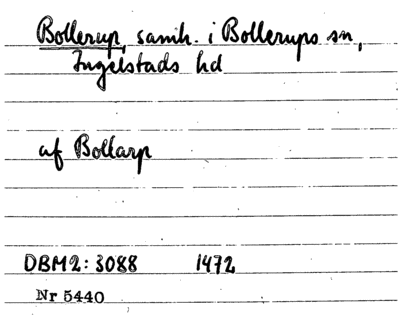 Bollerup, samh. i Bollerups sn,
Ingelstads hd
af Bollarp
DBM2: 3088 1472
Nr 5440